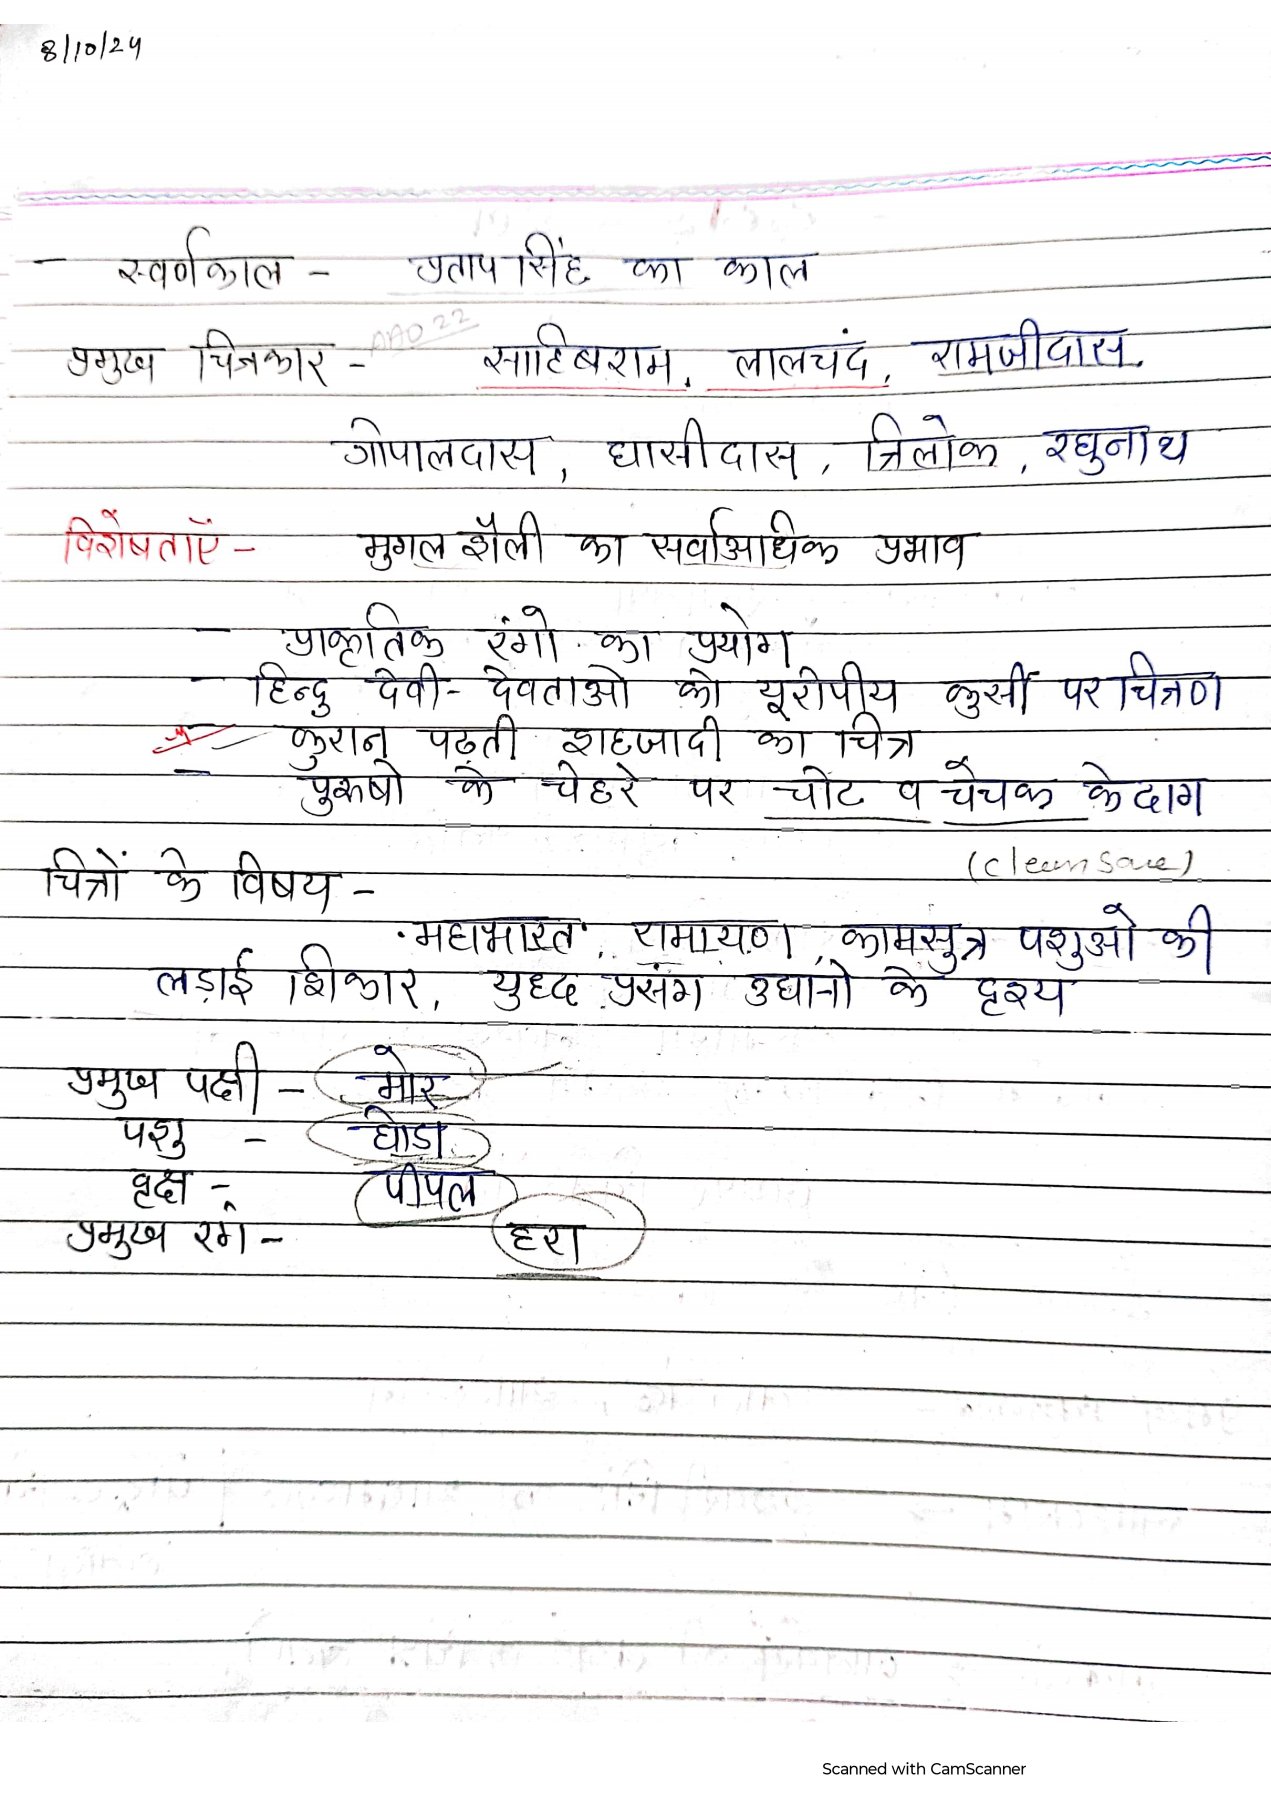 8/10/24
- स्वर्णकाल - प्रताप सिंह का काल
AAO 22
प्रमुख चित्रकार - साहिबराम, लालचंद, रामजीदास,
गोपालदास, घासीदास, त्रिलोक, रघुनाथ
विशेषताएँ - मुगल शैली का सर्वाअधिक प्रभाव
- प्राकृतिक रंगो का प्रयोग
- हिन्दु देवी - देवताओ को यूरोपीय कुर्सी पर चित्रण
- कुरान पढ़ती शहजादी का चित्र
- पुरूषो के चेहरे पर चोट व चेचक के दाग
(clean save)
चित्रों के विषय -
महाभारत, रामायण, कामसुत्र पशुओ की
लड़ाई शिकार, युध्द प्रसंग उधानो के दृश्य
प्रमुख पक्षी - मोर
पशु - घोडा
वृक्ष - पीपल
प्रमुख रंग - हरा
Scanned with CamScanner